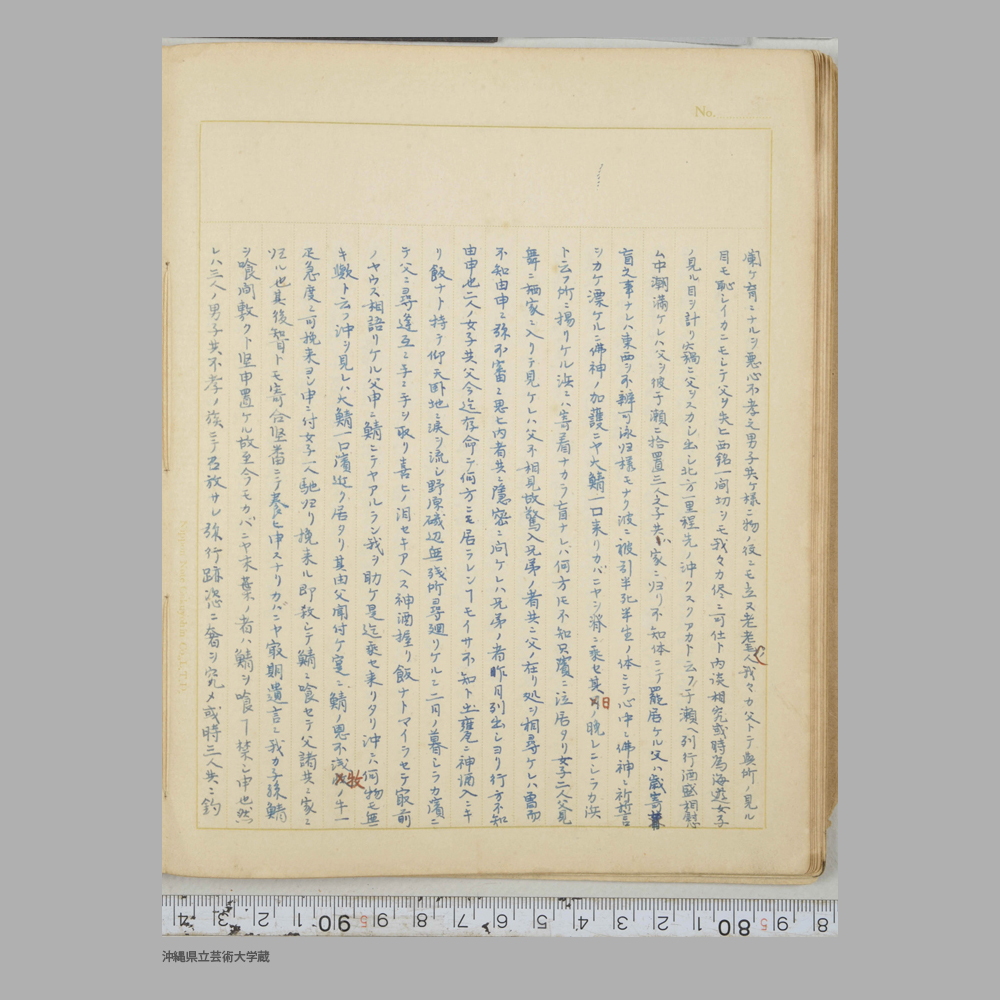 No.
爛ケ盲ニナルヲ悪心不孝之男子共ケ様ニ物ノ役ニモ立ヌ老人我々カ父トテ与所ノ見ル
目モ恥シイカニモシテ父ヲ失ヒ西銘一間切ヲモ我々カ侭ニ可仕ト内談相究或時為海遊女子
ノ見ル目ヲ計リ窃ニ父ヲスカシ出シ北方一里程先ノ沖クスクアカト云フ干瀬ヘ列行酒盛相慰
ム中潮満ケレハ父ヲ彼干瀬ニ捨置三人之子共ハ家ニ归リ不知体ニテ罷居ケル父ハ歳寄
盲之事ナレハ東西ヲ不辨可泳归様モナク波ニ被引半死半生ノ体ニテ心中ニ佛神ニ祈誓言
シカケ漂ケルニ佛神ノ加護ニヤ大鯖一口来リカバニヤヲ脊ニ乗セ其日ノ晩シニシラカ浜
ト云フ所ニ揚リケル浜ニハ寄着ナカラ盲ナレバ何方トモ不知只濱ニ泣居タリ女子二人父見
舞ニ栖家ニ入リテ見ケレハ父不相見故驚入兄弟ノ者共ニ父ノ在リ処ヲ相尋ケレハ曽而
不知由申ニ弥不審ニ思ヒ内者共ニ隠密ニ问ケレハ兄弟ノ者昨日列出シヨリ行方不知
由申也二人ノ女子共父今迄存命テ何方ニモ居ラレンヿモイサ不知ト土甕ニ神酒入ニキ
リ飯ナト持テ仰天卧地ニ涙ヲ流シ野原磯辺無残所尋廻リケルニ二月ノ暮シラカ濱ニ
テ父ニ尋逢互ニ手ニ手ヲ取リ喜ヒノ泪セキアヘス神酒握リ飯ナトマイラセテ最前
ノヤウス相語リケル父申ニ鯖ニテヤアルラン我ヲ助ケ是迄乗セ来リタリ沖ニハ何物モ無
キ歟ト云フ沖ヲ見レハ大鯖一口濱近ク居タリ其由父闻付ケ寔ニ鯖ノ恩不浅牧ノ牛一
疋急度ニ可挽来ヨシ申ニ付女子一人馳归リ挽来ル即殺シテ鯖ニ喰セテ父諸共ニ家ニ
归ル也其後智トモ寄合堅番ニテ養ヒ申スナリカバニヤ最期遺言ニ我カ子孫鯖
ヲ喰间敷ク卜堅申置ケル故至今モカバニヤ末葉ノ者ハ鯖ヲ喰ヿ禁シ申也然
レハ三人ノ男子共不孝ノ族ニテ召放サレ弥行跡恣ニ奢ヲ究メ或時三人共ニ釣
沖縄県立芸術大学蔵